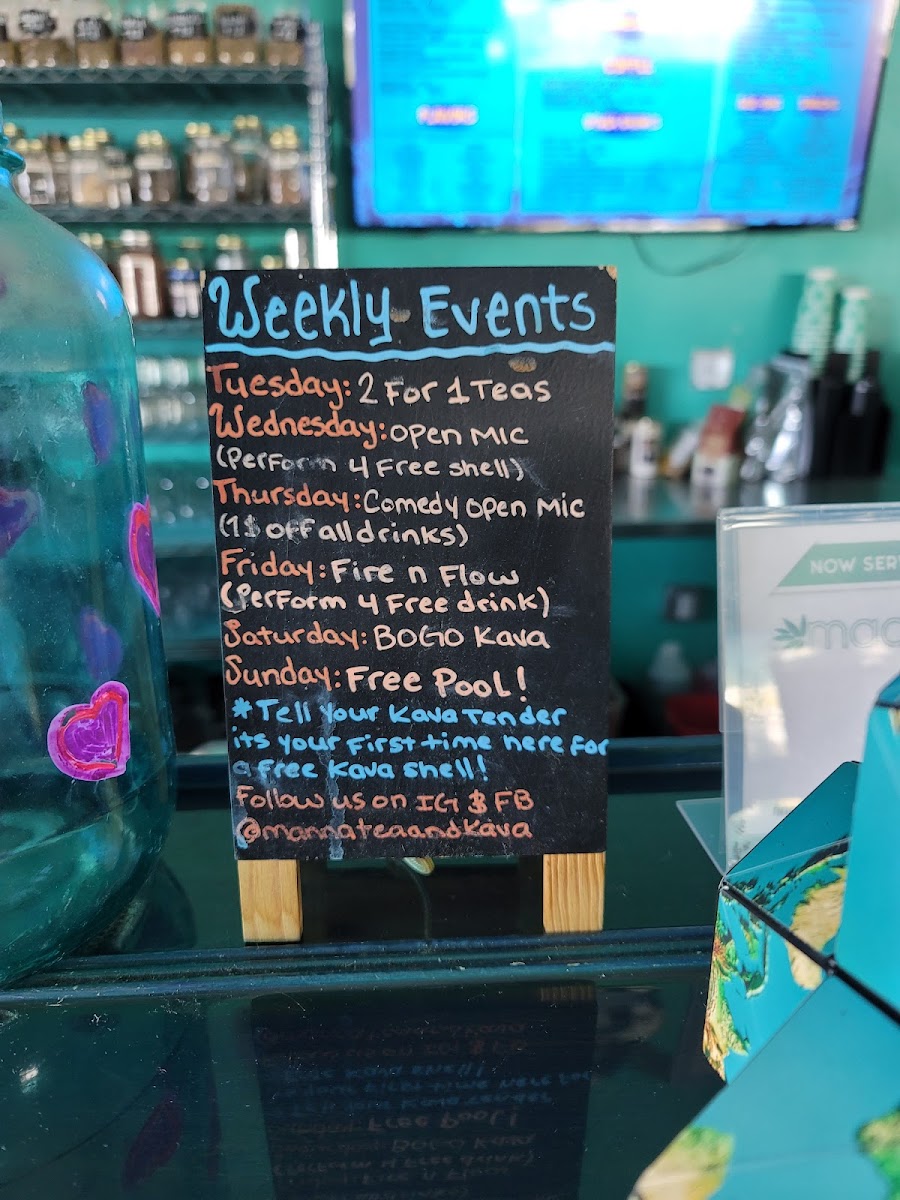 Weekly Events
Tuesday: 2 For 1 Teas
Wednesday: open MIC
(Perform 4 Free shell)
Thursday: Comedy open Mic
(1$ off all drinks)
Friday: Fire n Flow
(Perform 4 Free drink)
Saturday: BOGO Kava
Sunday: Free Pool!
*Tell Your Kava Tender
its your first time here for
a free Kava shell!
Follow us on IG $ FB
@mannateaandkava
NOW SER